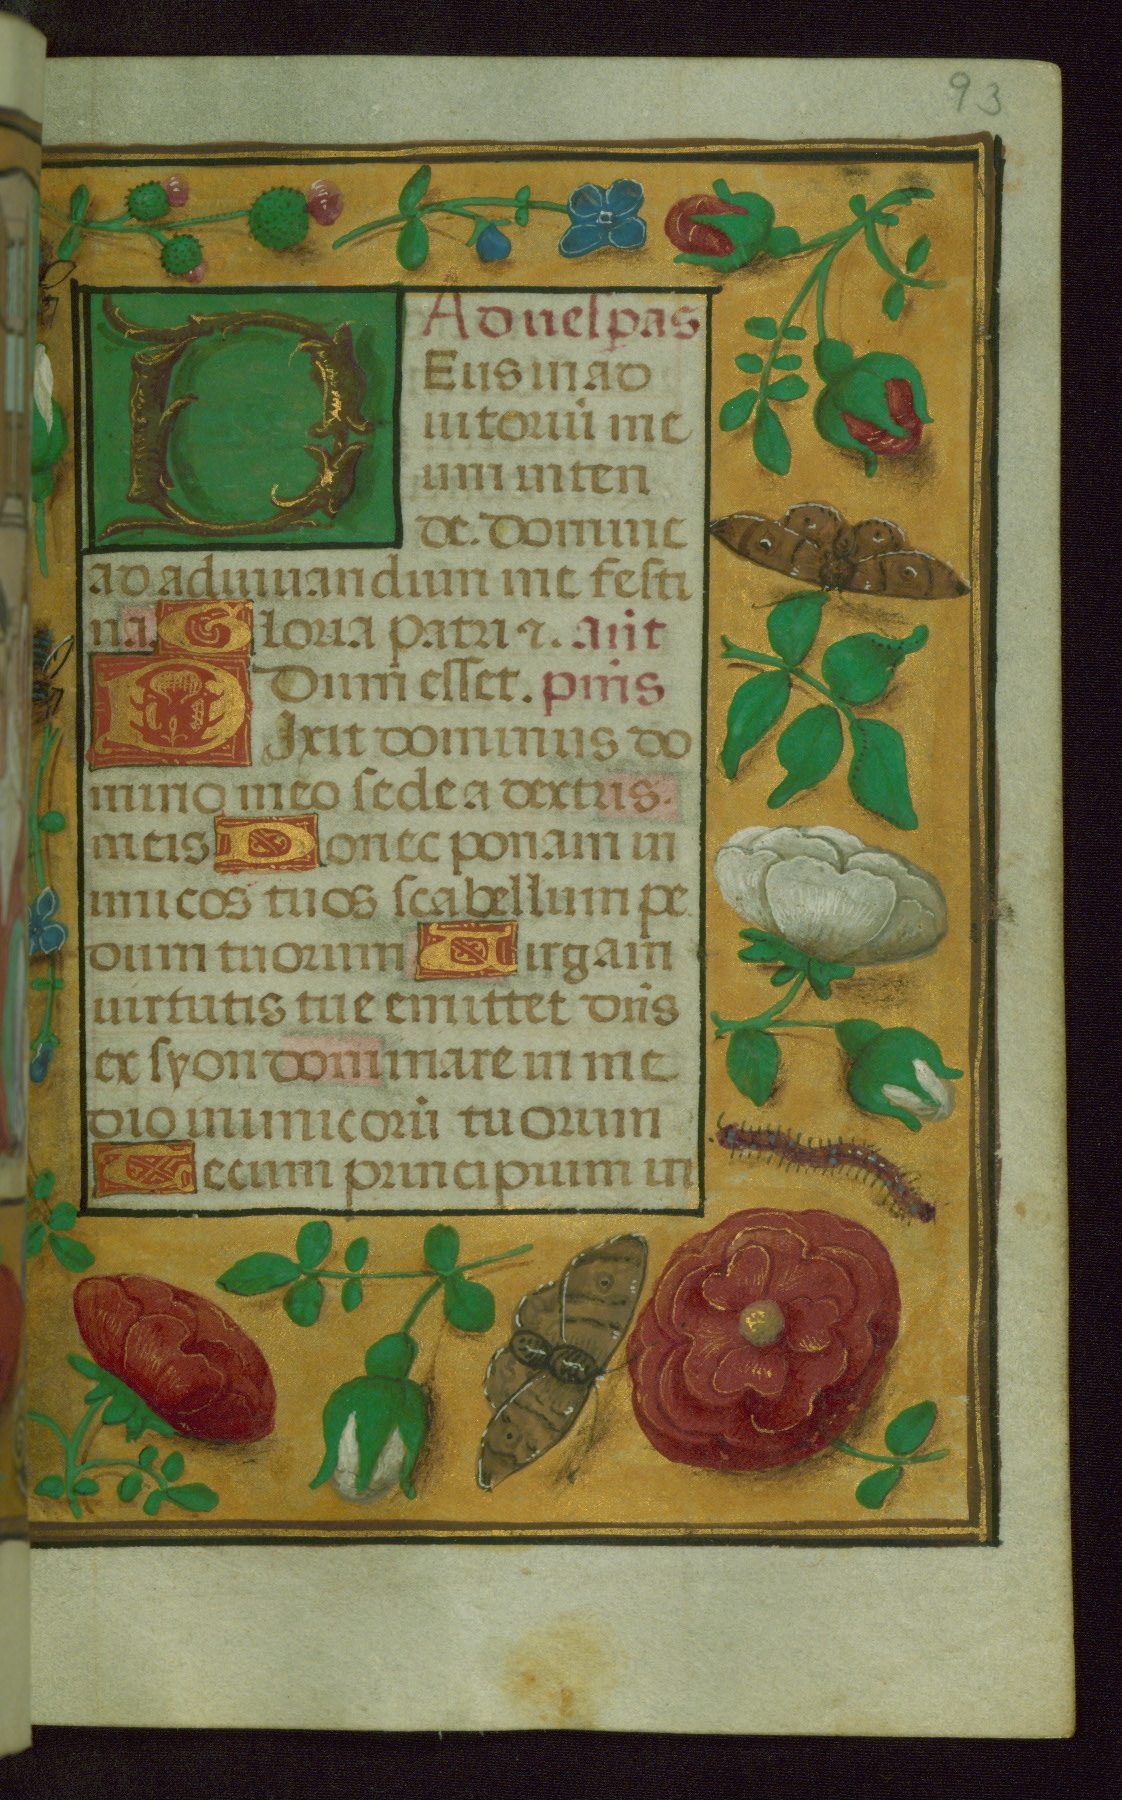 93
Ad uesp̱as
Deus in ad
iutoriū me
um inten
de. Domine
ad adiuuandum me festi
na. Gloria patri ⁊. añt
Dum esset. p̄nīs
Dixit dominus do
mino meo sede a dextris.
meis Donec ponam in
imicos tuos scabellum pe
dum tuorum Uirgam
uirtutis tue emittet dn̄s
ex syon dominare in me
dio inimicorū tuorum
Tecum principium in